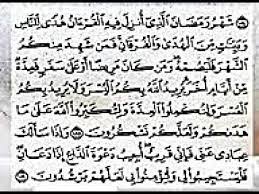 شَهْرُ رَمَضَانَ الَّذِي أُنزِلَ فِيهِ الْقُرْءَانُ هُدًى لِّلنَّاسِ
وَبَيِّنَاتٍ مِّنَ الْهُدَى وَالْفُرْقَانِ فَمَن شَهِدَ مِنكُمُ
الشَّهْرَ فَلْيَصُمْهُ وَمَن كَانَ مَرِيضًا أَوْ عَلَى سَفَرٍ فَعِدَّةٌ
مِّنْ أَيَّامٍ أُخَرَ يُرِيدُ اللَّهُ بِكُمُ الْيُسْرَ وَلَا يُرِيدُ بِكُمُ
الْعُسْرَ وَلِتُكْمِلُوا الْعِدَّةَ وَلِتُكَبِّرُوا اللَّهَ عَلَى مَا
هَدَاكُمْ وَلَعَلَّكُمْ تَشْكُرُونَ ١٨٥ وَإِذَا سَأَلَكَ
عِبَادِي عَنِّي فَإِنِّي قَرِيبٌ أُجِيبُ دَعْوَةَ الدَّاعِ إِذَا دَعَانِ
فَلْيَسْتَجِيبُوا لِي وَلْيُؤْمِنُوا بِي لَعَلَّهُمْ يَرْشُدُونَ ١٨٦